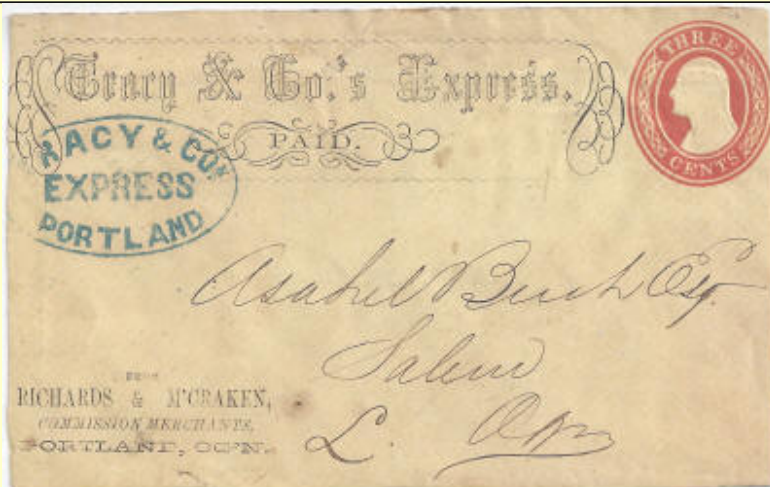 Tracy & Co.'s Express.
PAID.
THREE
CENTS
RACY & CO'S
EXPRESS
PORTLAND
Asahel Bush Esq.
Salem
L. Ogn
FROM
RICHARDS & M'CRAKEN,
COMMISSION MERCHANTS,
PORTLAND, OG'N.